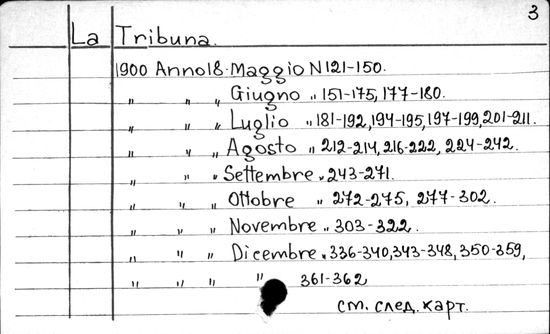 3
La Tribuna.
1900 Anno 18. Maggio N 121-150.
" " " Giugno " 151-175, 177-180.
" " " Luglio " 181-192, 194-195, 197-199, 201-211.
" " " Agosto " 212-214, 216-222, 224-242.
" " " Settembre " 243-271.
" " " Ottobre " 272-275, 277-302.
" " " Novembre " 303-322.
" " " Dicembre " 336-340, 343-348, 350-359,
" " " " 361-362
см. след. карт.